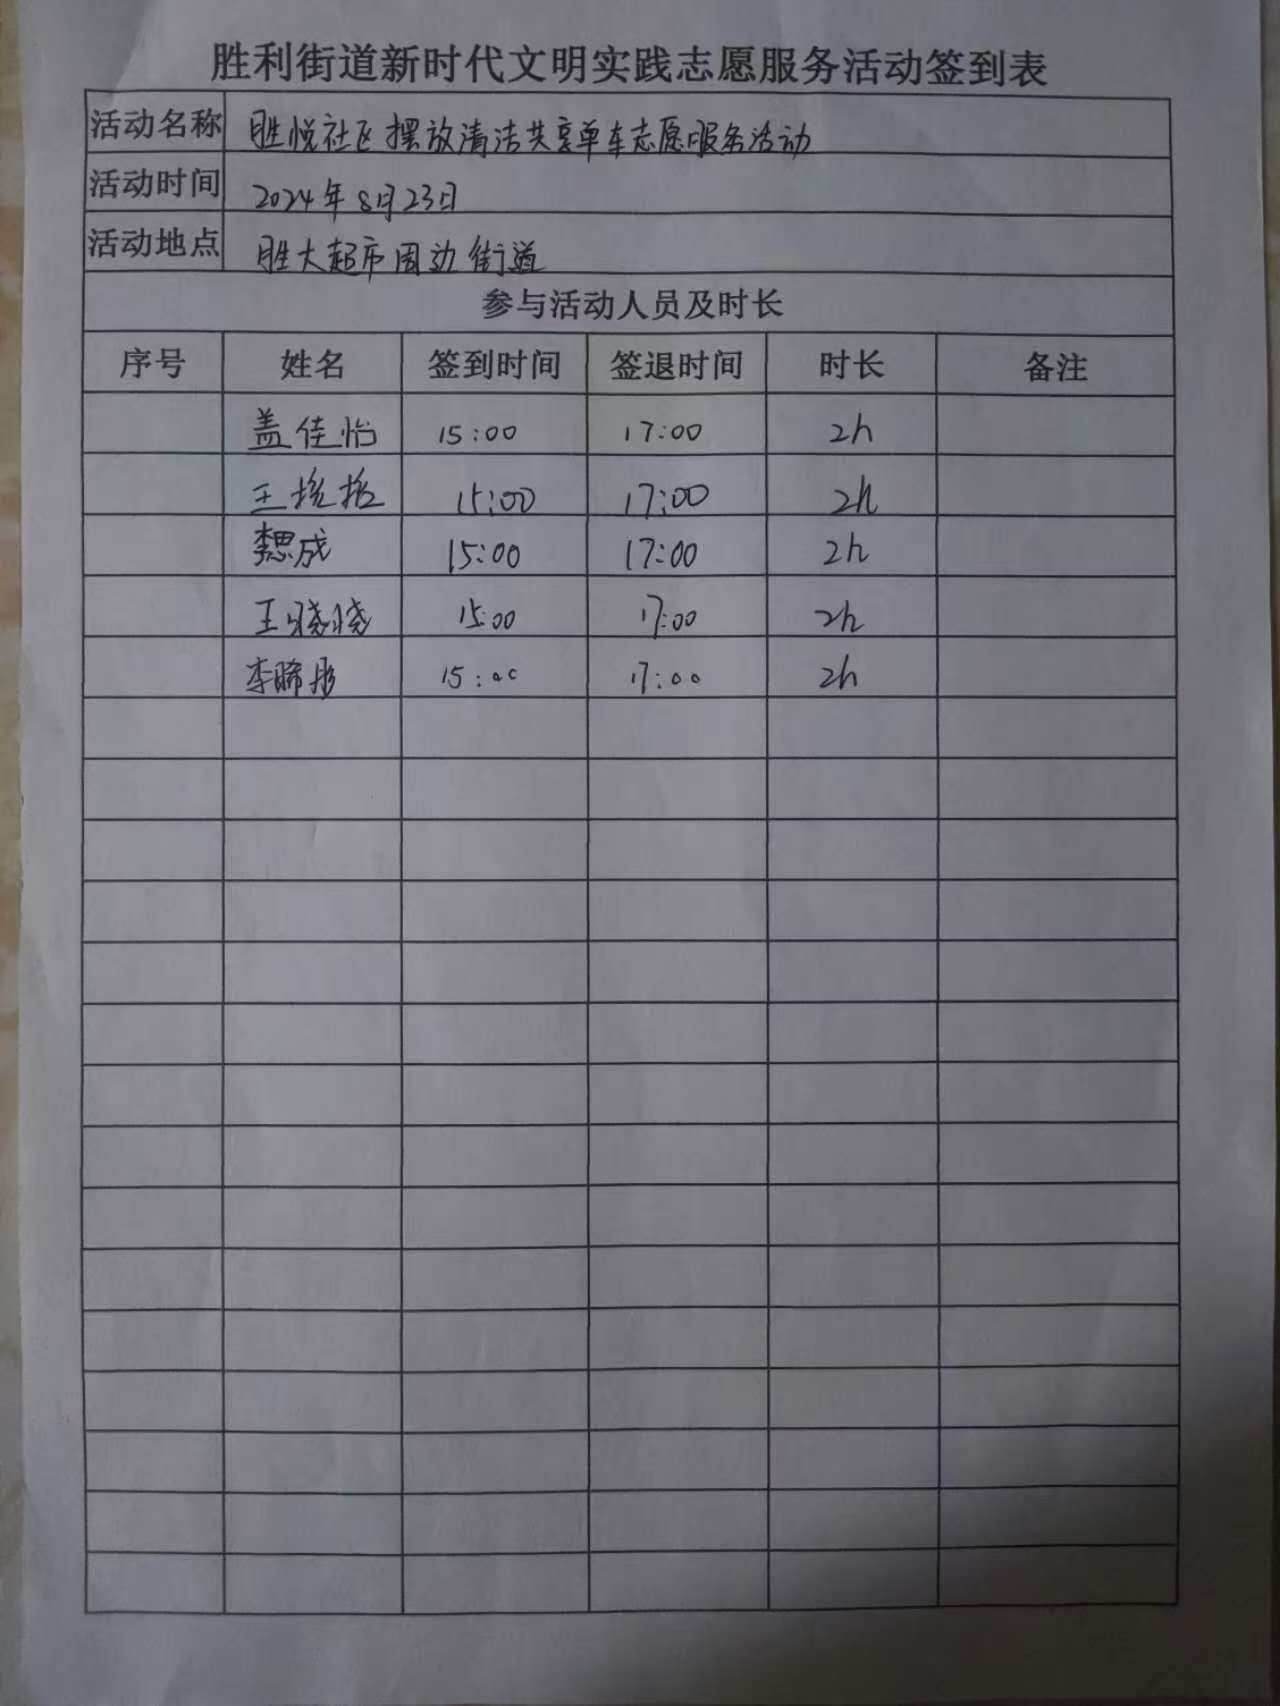 胜利街道新时代文明实践志愿服务活动签到表
活动名称 胜悦社区摆放清洁共享单车志愿服务活动
活动时间 2024年8月23日
活动地点 胜大超市周边街道
参与活动人员及时长
序号 姓名 签到时间 签退时间 时长 备注
盖佳怡 15:00 17:00 2h
王 15:00 17:00 2h
15:00 17:00 2h
王晓晓 15:00 17:00 2h
李晞彤 15:00 17:00 2h